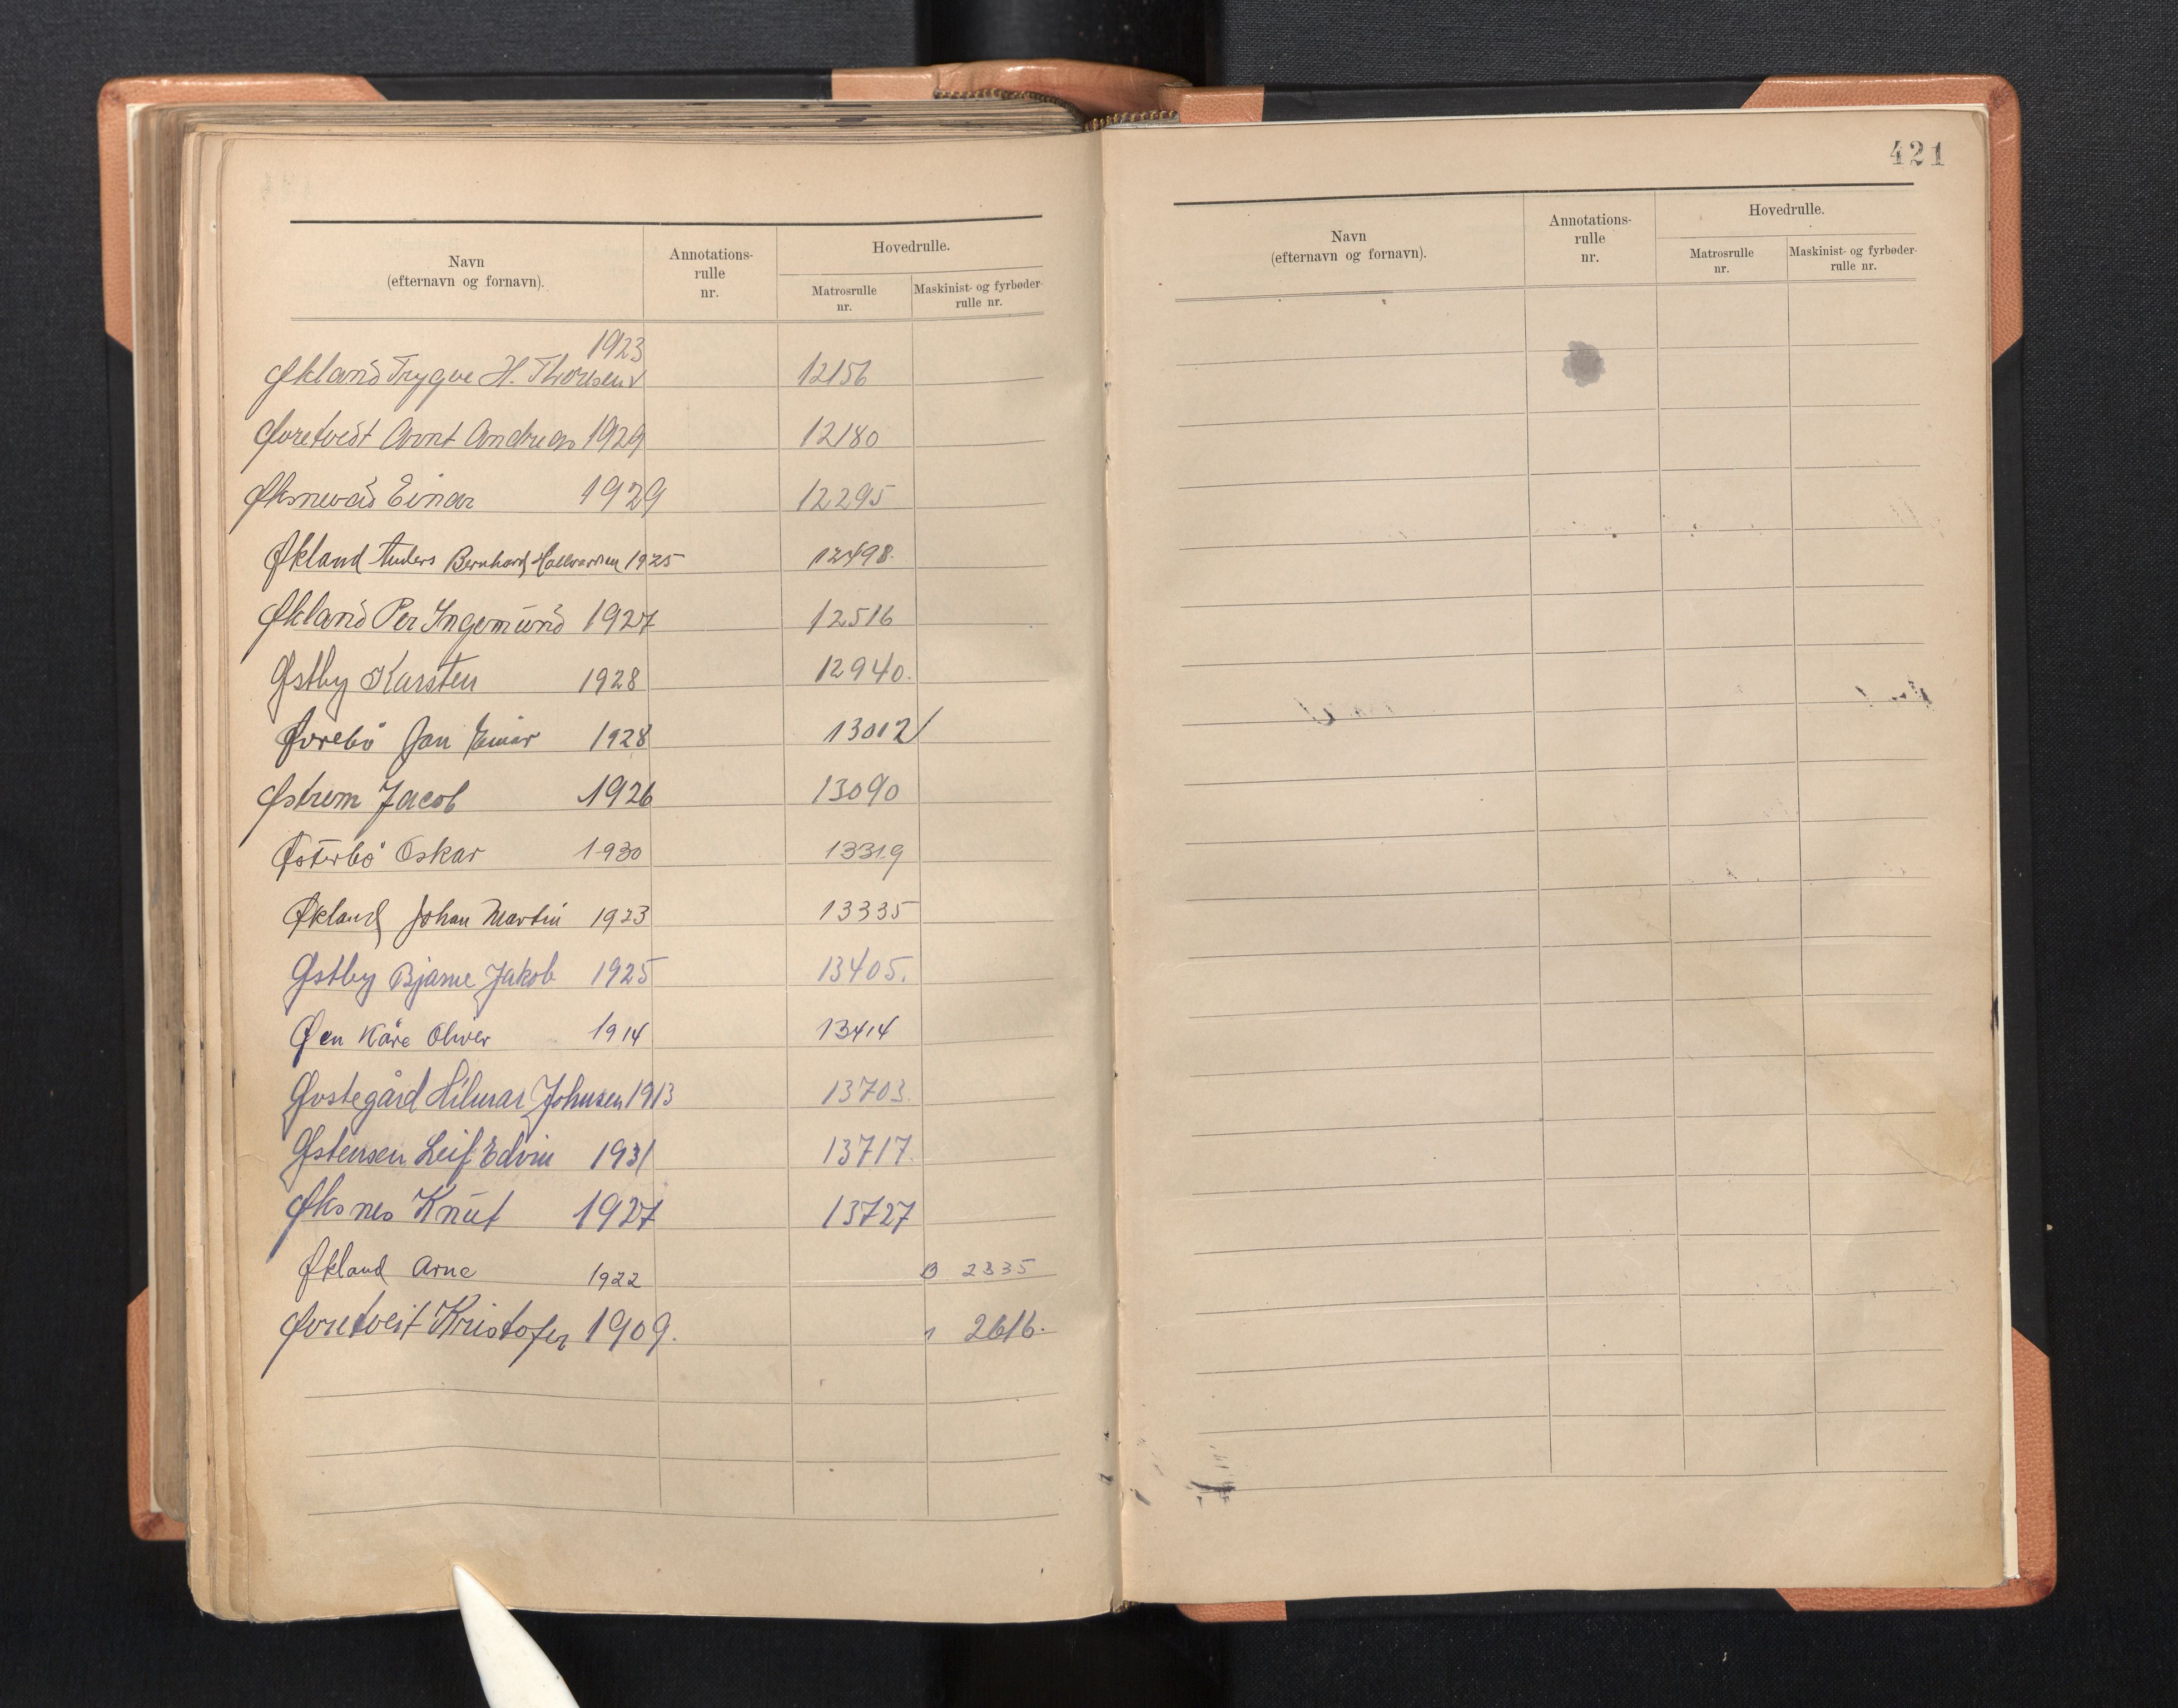 Navn
(efternavn og fornavn).
Annotations-
rulle
nr.
Hovedrulle.
Matrosrulle
nr.
Maskinist- og fyrbøder-
rulle nr.
1923
Økland Trygve H. Thorsen 12156
Øvretveit Arnt Andreas 1929 12180
Øksnevad Einar 1929 12295
Økland Anders Bernhard Hallvardsen 1925 12498.
Økland Per Ingemund 1927 12516
Østby Karsten 1928 12940.
Øvrebö Jan Einar 1928 13012
Østrem Jacob 1926 13090
Østerbö Oskar 1930 13319
Økland Johan Martin 1923 13335
Østby Bjarne Jakob 1925 13405.
Øen Kåre Oliver 1914 13414
Øvstegård Hilmar Johnsen 1913 13703.
Østensen Leif Edvin 1931 13717.
Øksnes Knut 1927 13727
Økland Arne 1922 B 2335
Øvretveit Kristofer 1909. 2616.
421
Navn
(efternavn og fornavn).
Annotations-
rulle
nr.
Hovedrulle.
Matrosrulle
nr.
Maskinist- og fyrbøder-
rulle nr.